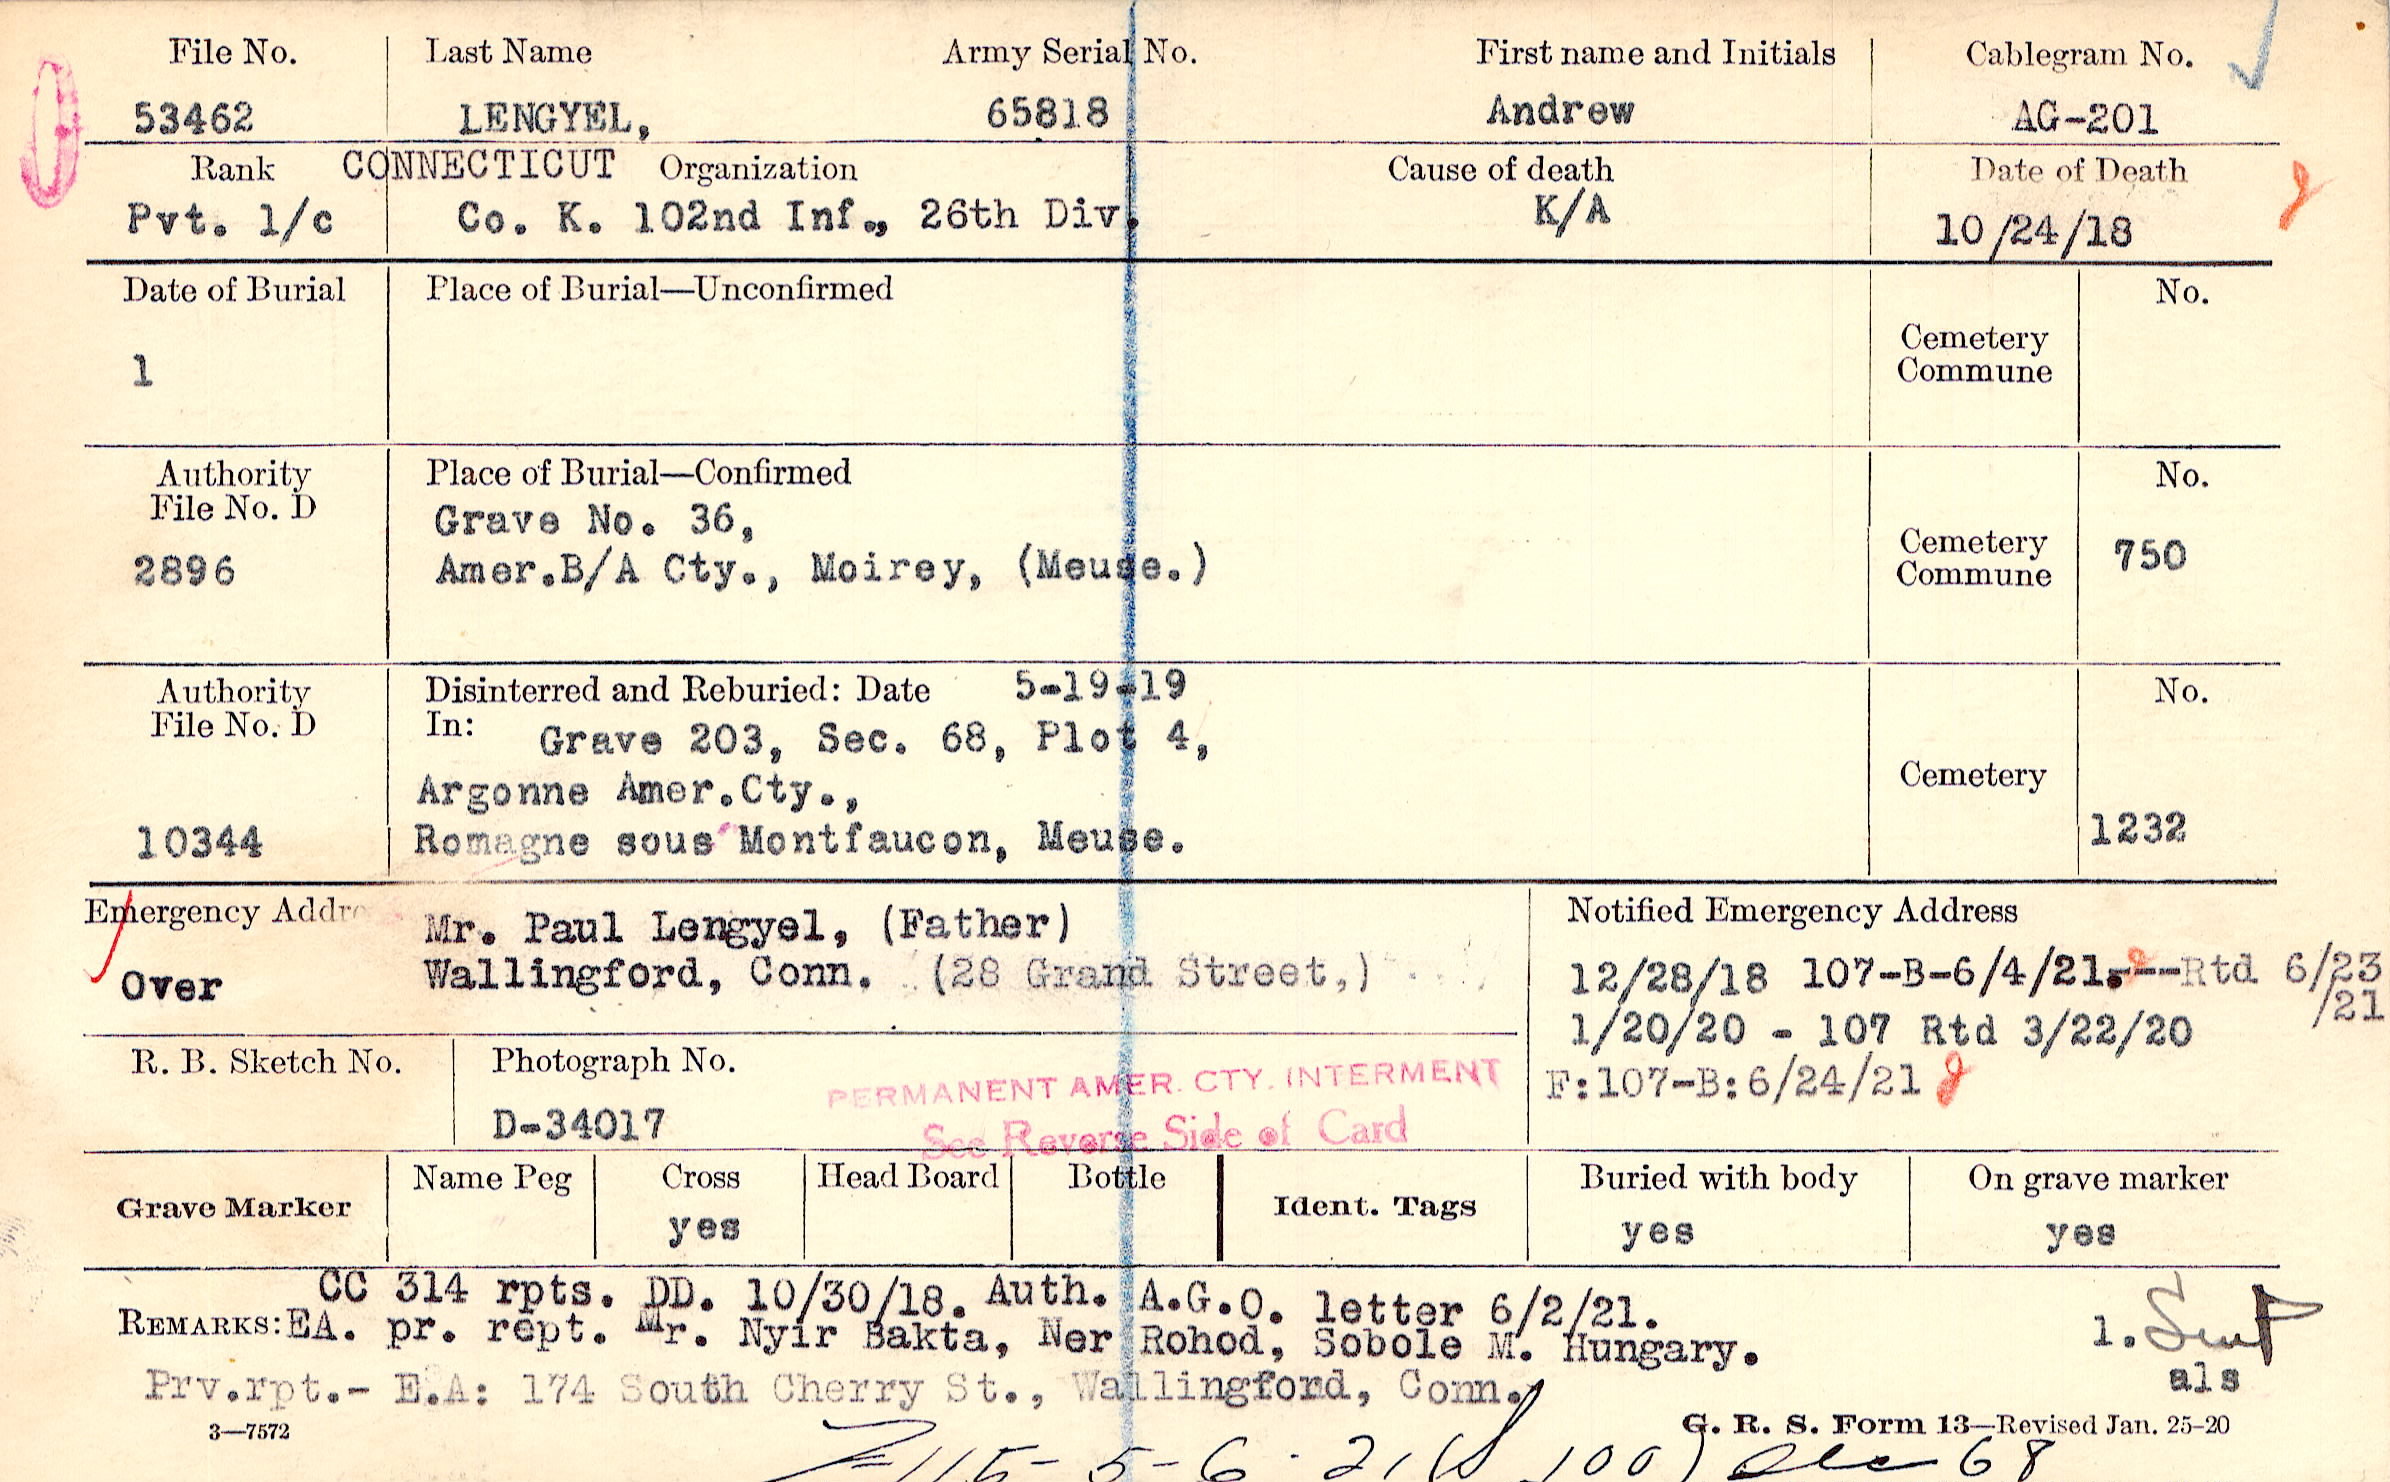 File No. Last Name Army Serial No. First name and Initials Cablegram No.
53462 LENGYEL, 65818 Andrew AG-201
Rank CONNECTICUT Organization Cause of death Date of Death
Pvt. 1/c Co. K. 102nd Inf., 26th Div. K/A 10/24/18
Date of Burial Place of Burial—Unconfirmed No.
1 Cemetery
Commune
Authority Place of Burial—Confirmed No.
File No. D Grave No. 36,
2896 Amer.B/A Cty., Moirey, (Meuse.) Cemetery 750
Commune
Authority Disinterred and Reburied: Date 5-19-19 No.
File No. D In: Grave 203, Sec. 68, Plot 4,
Argonne Amer.Cty., Cemetery
10344 Romagne sous Montfaucon, Meuse. 1232
Emergency Addre Mr. Paul Lengyel, (Father) Notified Emergency Address
Over Wallingford, Conn. (28 Grand Street,) 12/28/18 107-B-6/4/21.---Rtd 6/23
/21
1/20/20 - 107 Rtd 3/22/20
R. B. Sketch No. Photograph No. F:107-B:6/24/21
PERMANENT AMER. CTY. INTERMENT
D-34017 See Reverse Side of Card
Grave Marker Name Peg Cross Head Board Bottle Ident. Tags Buried with body On grave marker
yes yes yes
CC 314 rpts. DD. 10/30/18. Auth. A.G.O. letter 6/2/21.
REMARKS: EA. pr. rept. Mr. Nyir Bakta, Ner Rohod, Sobole M. Hungary. 1.
Prv.rpt.- E.A: 174 South Cherry St., Wallingford, Conn. als
3—7572 G. R. S. Form 13—Revised Jan. 25-20
115-5-6-21 100) 68